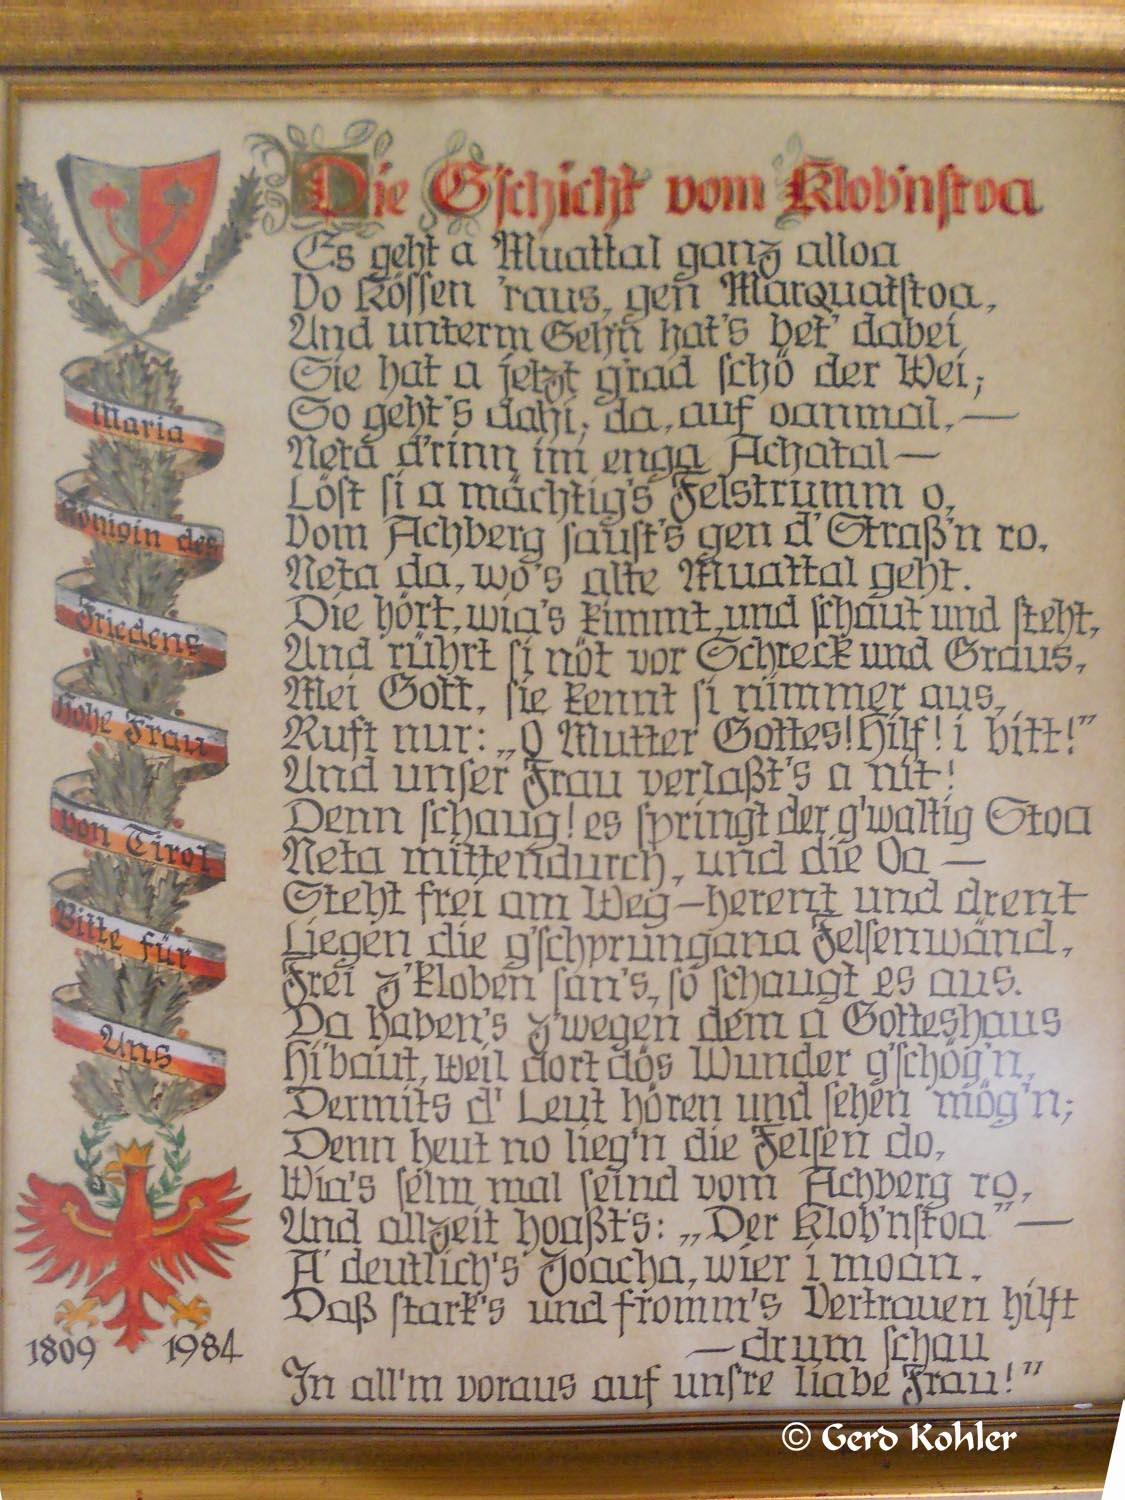 Die G'schicht vom Klob'nstoa
Es geht a Muattal ganz alloa
Vo Kössen 'raus, gen Marquatstoa,
Und unterm Gehn hat's bet' dabei,
Sie hat a jetzt g'rad schö der Wei;
So geht's dahi; da, auf oanmal, —
Neta d'rinn im enga Achatal —
Löst si a mächtig's Felstrumm o,
Vom Achberg saust's gen d' Straß'n ro,
Neta da, wo's alte Muattal geht.
Die hört, wia's kimmt, und schaut und steht,
Und rührt si nöt vor Schreck und Graus,
Mei Gott, sie kennt si nimmer aus,
Ruft nur: „O Mutter Gottes! Hilf! i bitt!"
Und unser Frau verlaßt's a nit!
Denn schaug! es springt der g'waltig Stoa
Neta mittendurch, und die Oa —
Steht frei am Weg — herent und drent
Liegen die g'schprungana Felsenwänd,
Frei z'kloben san's, so schaugt es aus.
Da haben's z'wegen dem a Gotteshaus
Hi'baut, weil dort dös Wunder g'schög'n,
Dermits d' Leut hören und sehen mög'n;
Denn heut no lieg'n die Felsen do,
Wia's selm mal seind vom Achberg ro,
Und allzeit hoaßt's: „Der Klob'nstoa" —
A' deutlich's Zoacha, wier i moan,
Daß stark's und fromm's Vertrauen hilft
— drum schau
In all'm voraus auf unsre liabe Frau!"
Maria
Königin des
Friedens
Hohe Frau
von Tirol
Bitte für
Uns
1809 1984
© Gerd Kohler